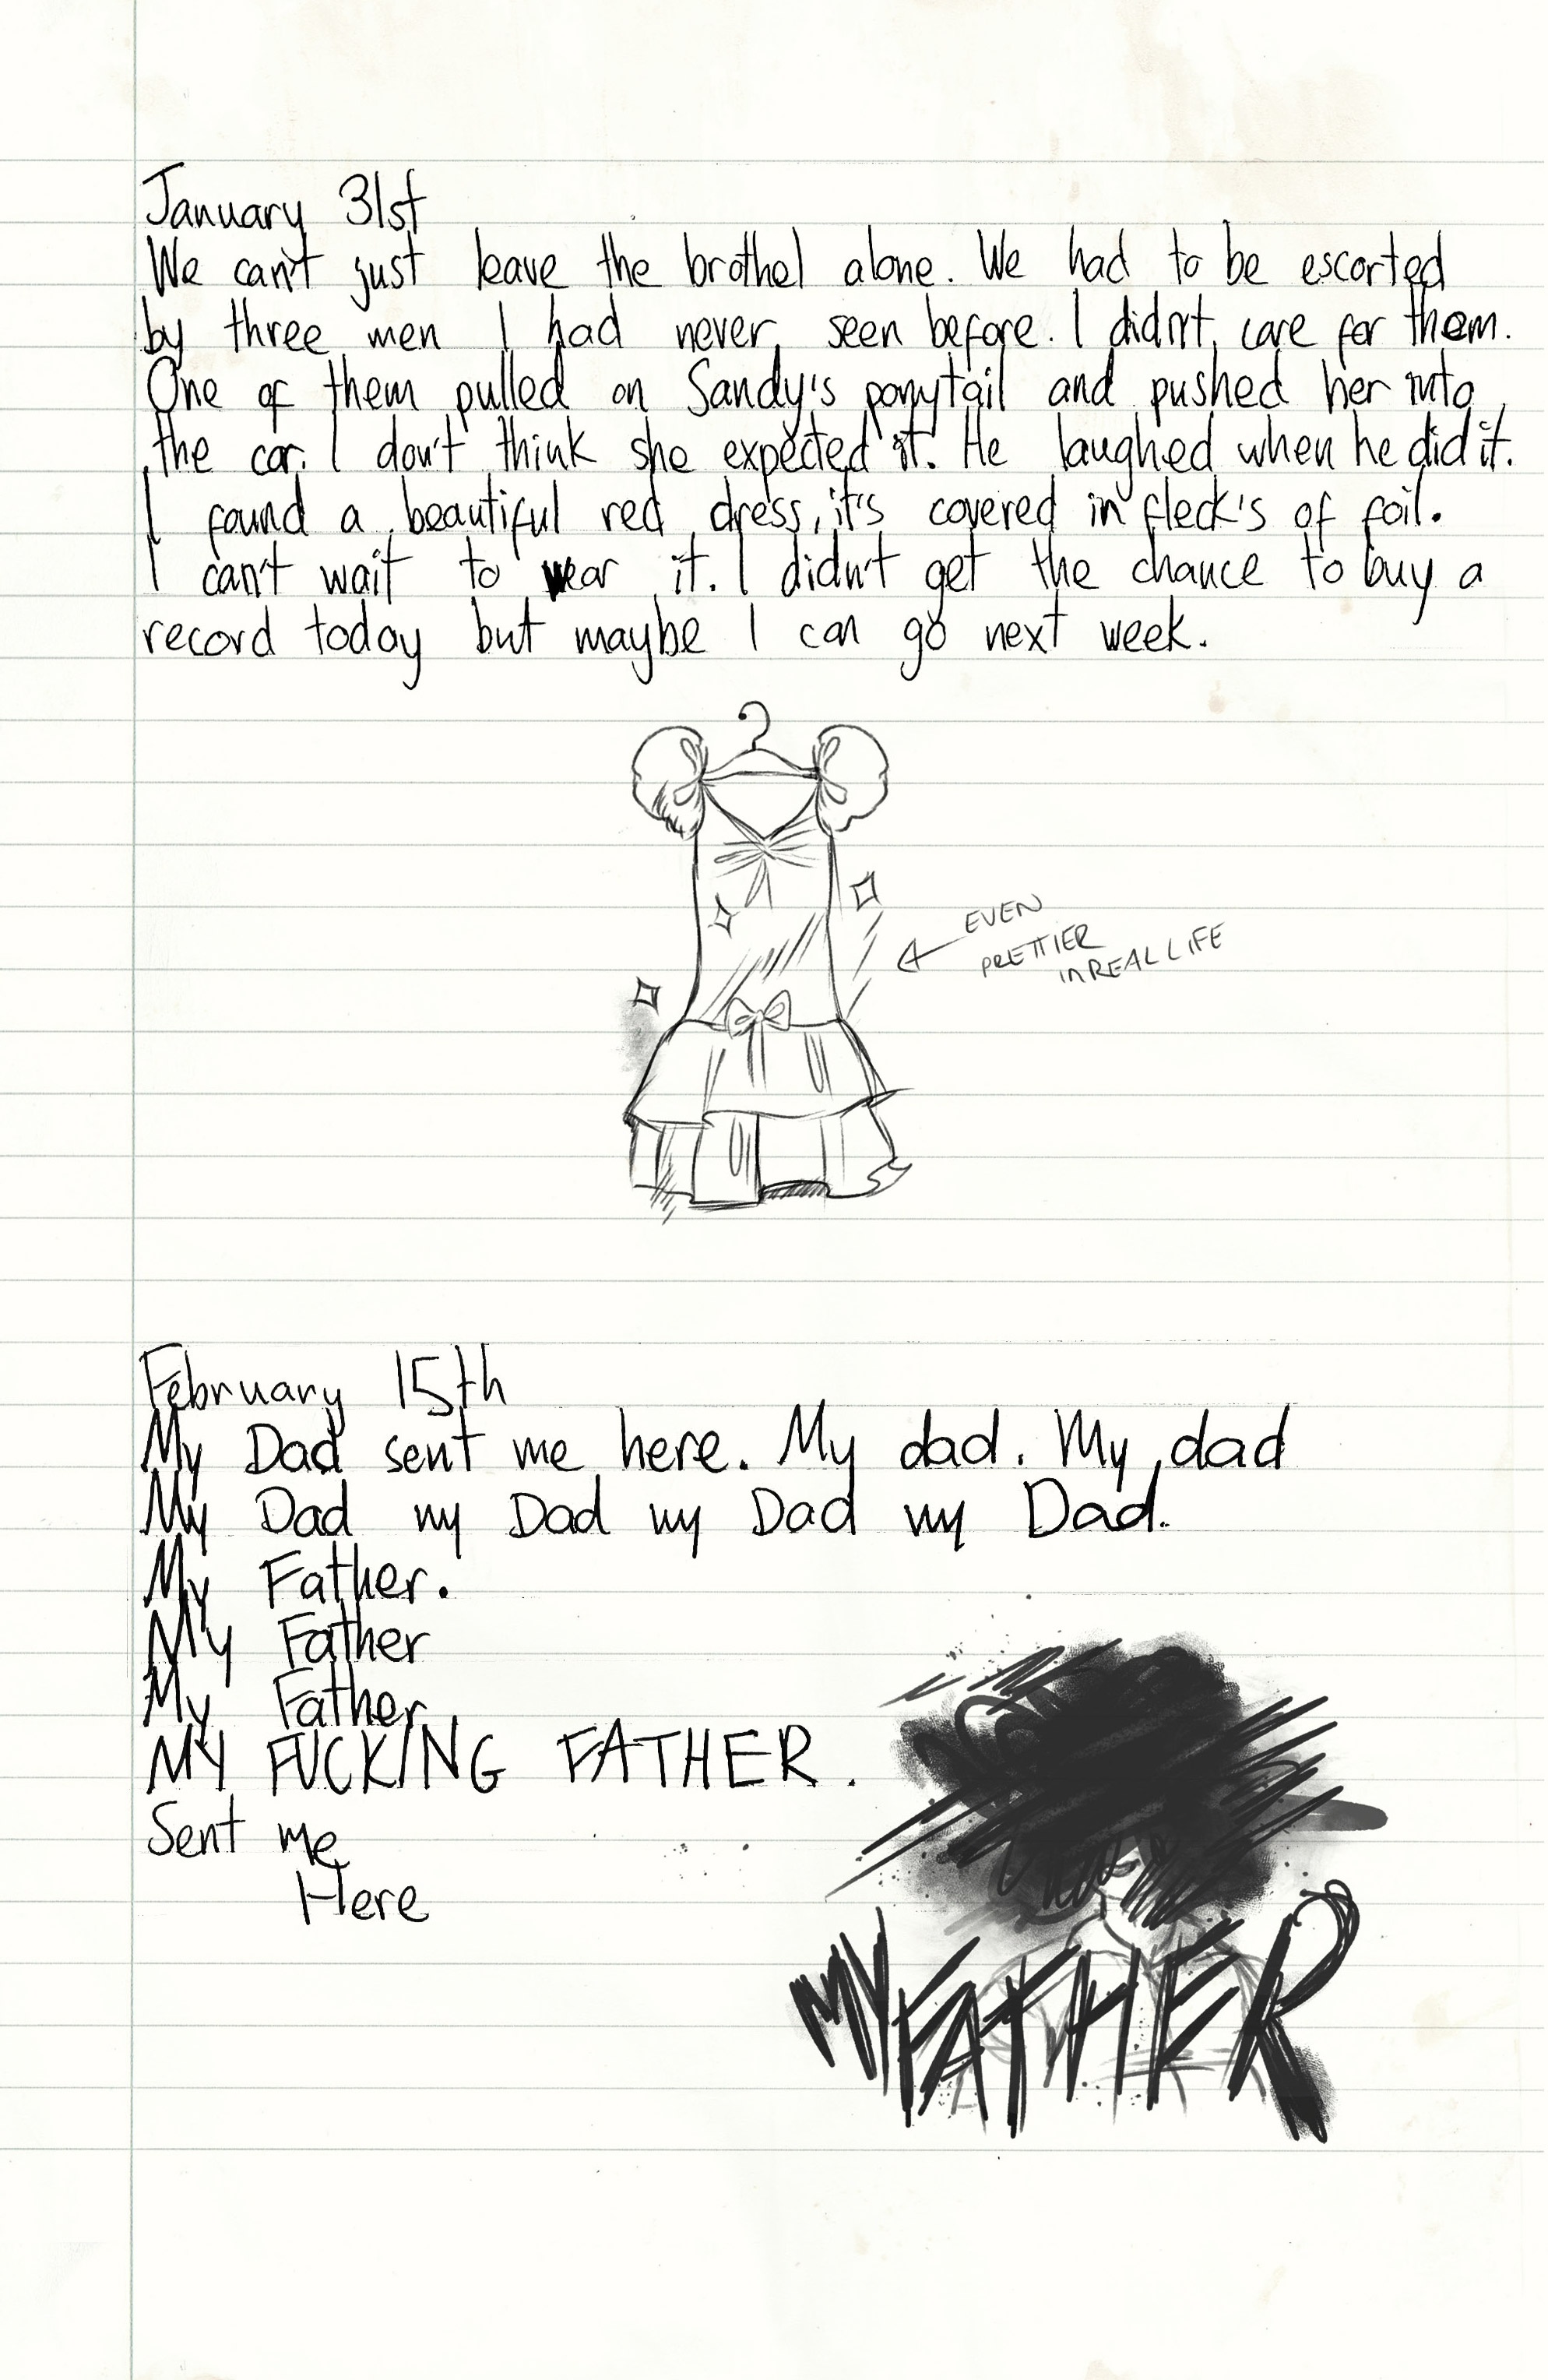 January 31st
We can't just leave the brothel alone. We had to be escorted
by three men I had never seen before. I didn't care for them.
One of them pulled on Sandy's ponytail and pushed her into
the car. I don't think she expected it. He laughed when he did it.
I found a beautiful red dress, it's covered in fleck's of foil.
I can't wait to wear it. I didn't get the chance to buy a
record today but maybe I can go next week.
EVEN
PRETTIER
in REAL LIFE
February 15th
My Dad sent me here. My dad. My dad
My Dad my Dad my Dad my Dad.
My Father.
My Father
My Father
MY FUCKING FATHER.
Sent me
Here
MY FATHER